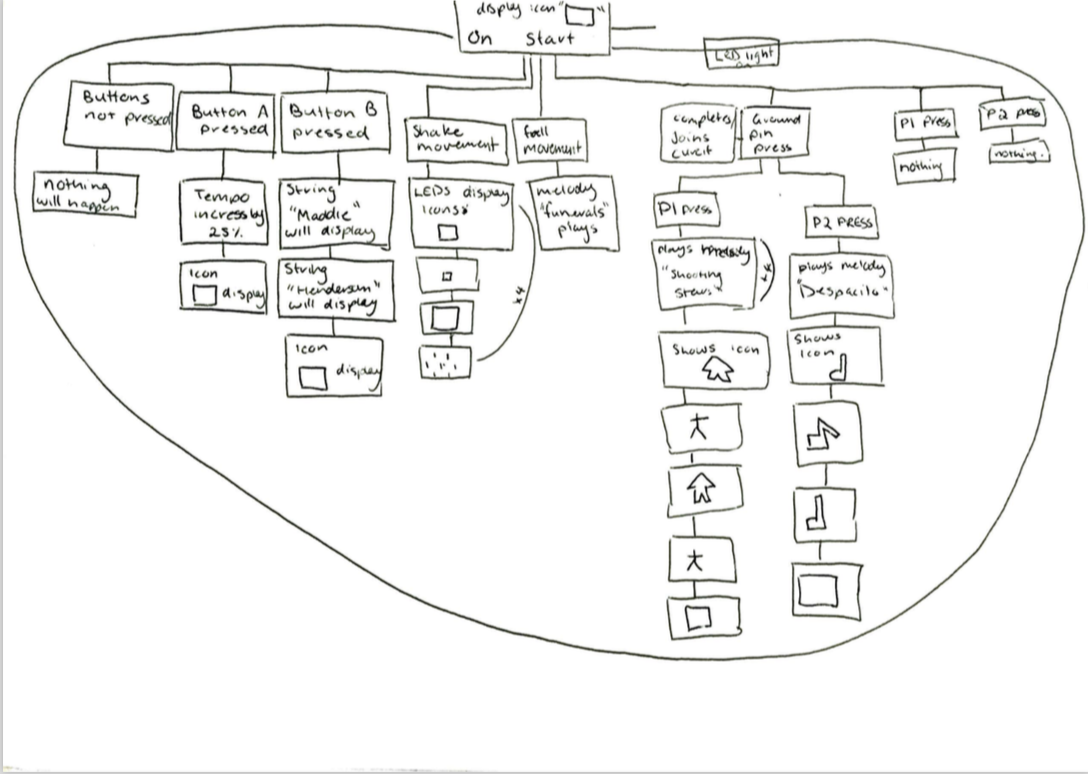 display icon " "
On Start
LED light
on
Buttons
not pressed
nothing
will happen
Button A
pressed
Tempo
incress by
25%
Icon
display
Button B
pressed
String
"Maddie"
will display
String
"Henderson"
will display
Icon
display
Shake
movement
LEDS display
icons
x4
fall
movement
melody
"funerals"
plays
completes/
Joins
curcit
Ground
pin
press
P1 press
plays melody
"Shooting
Stars"
x4
Shows icon
P2 PRESS
plays melody
"Despacito"
Shows
icon
P1 press
nothing
P2 press
nothing.